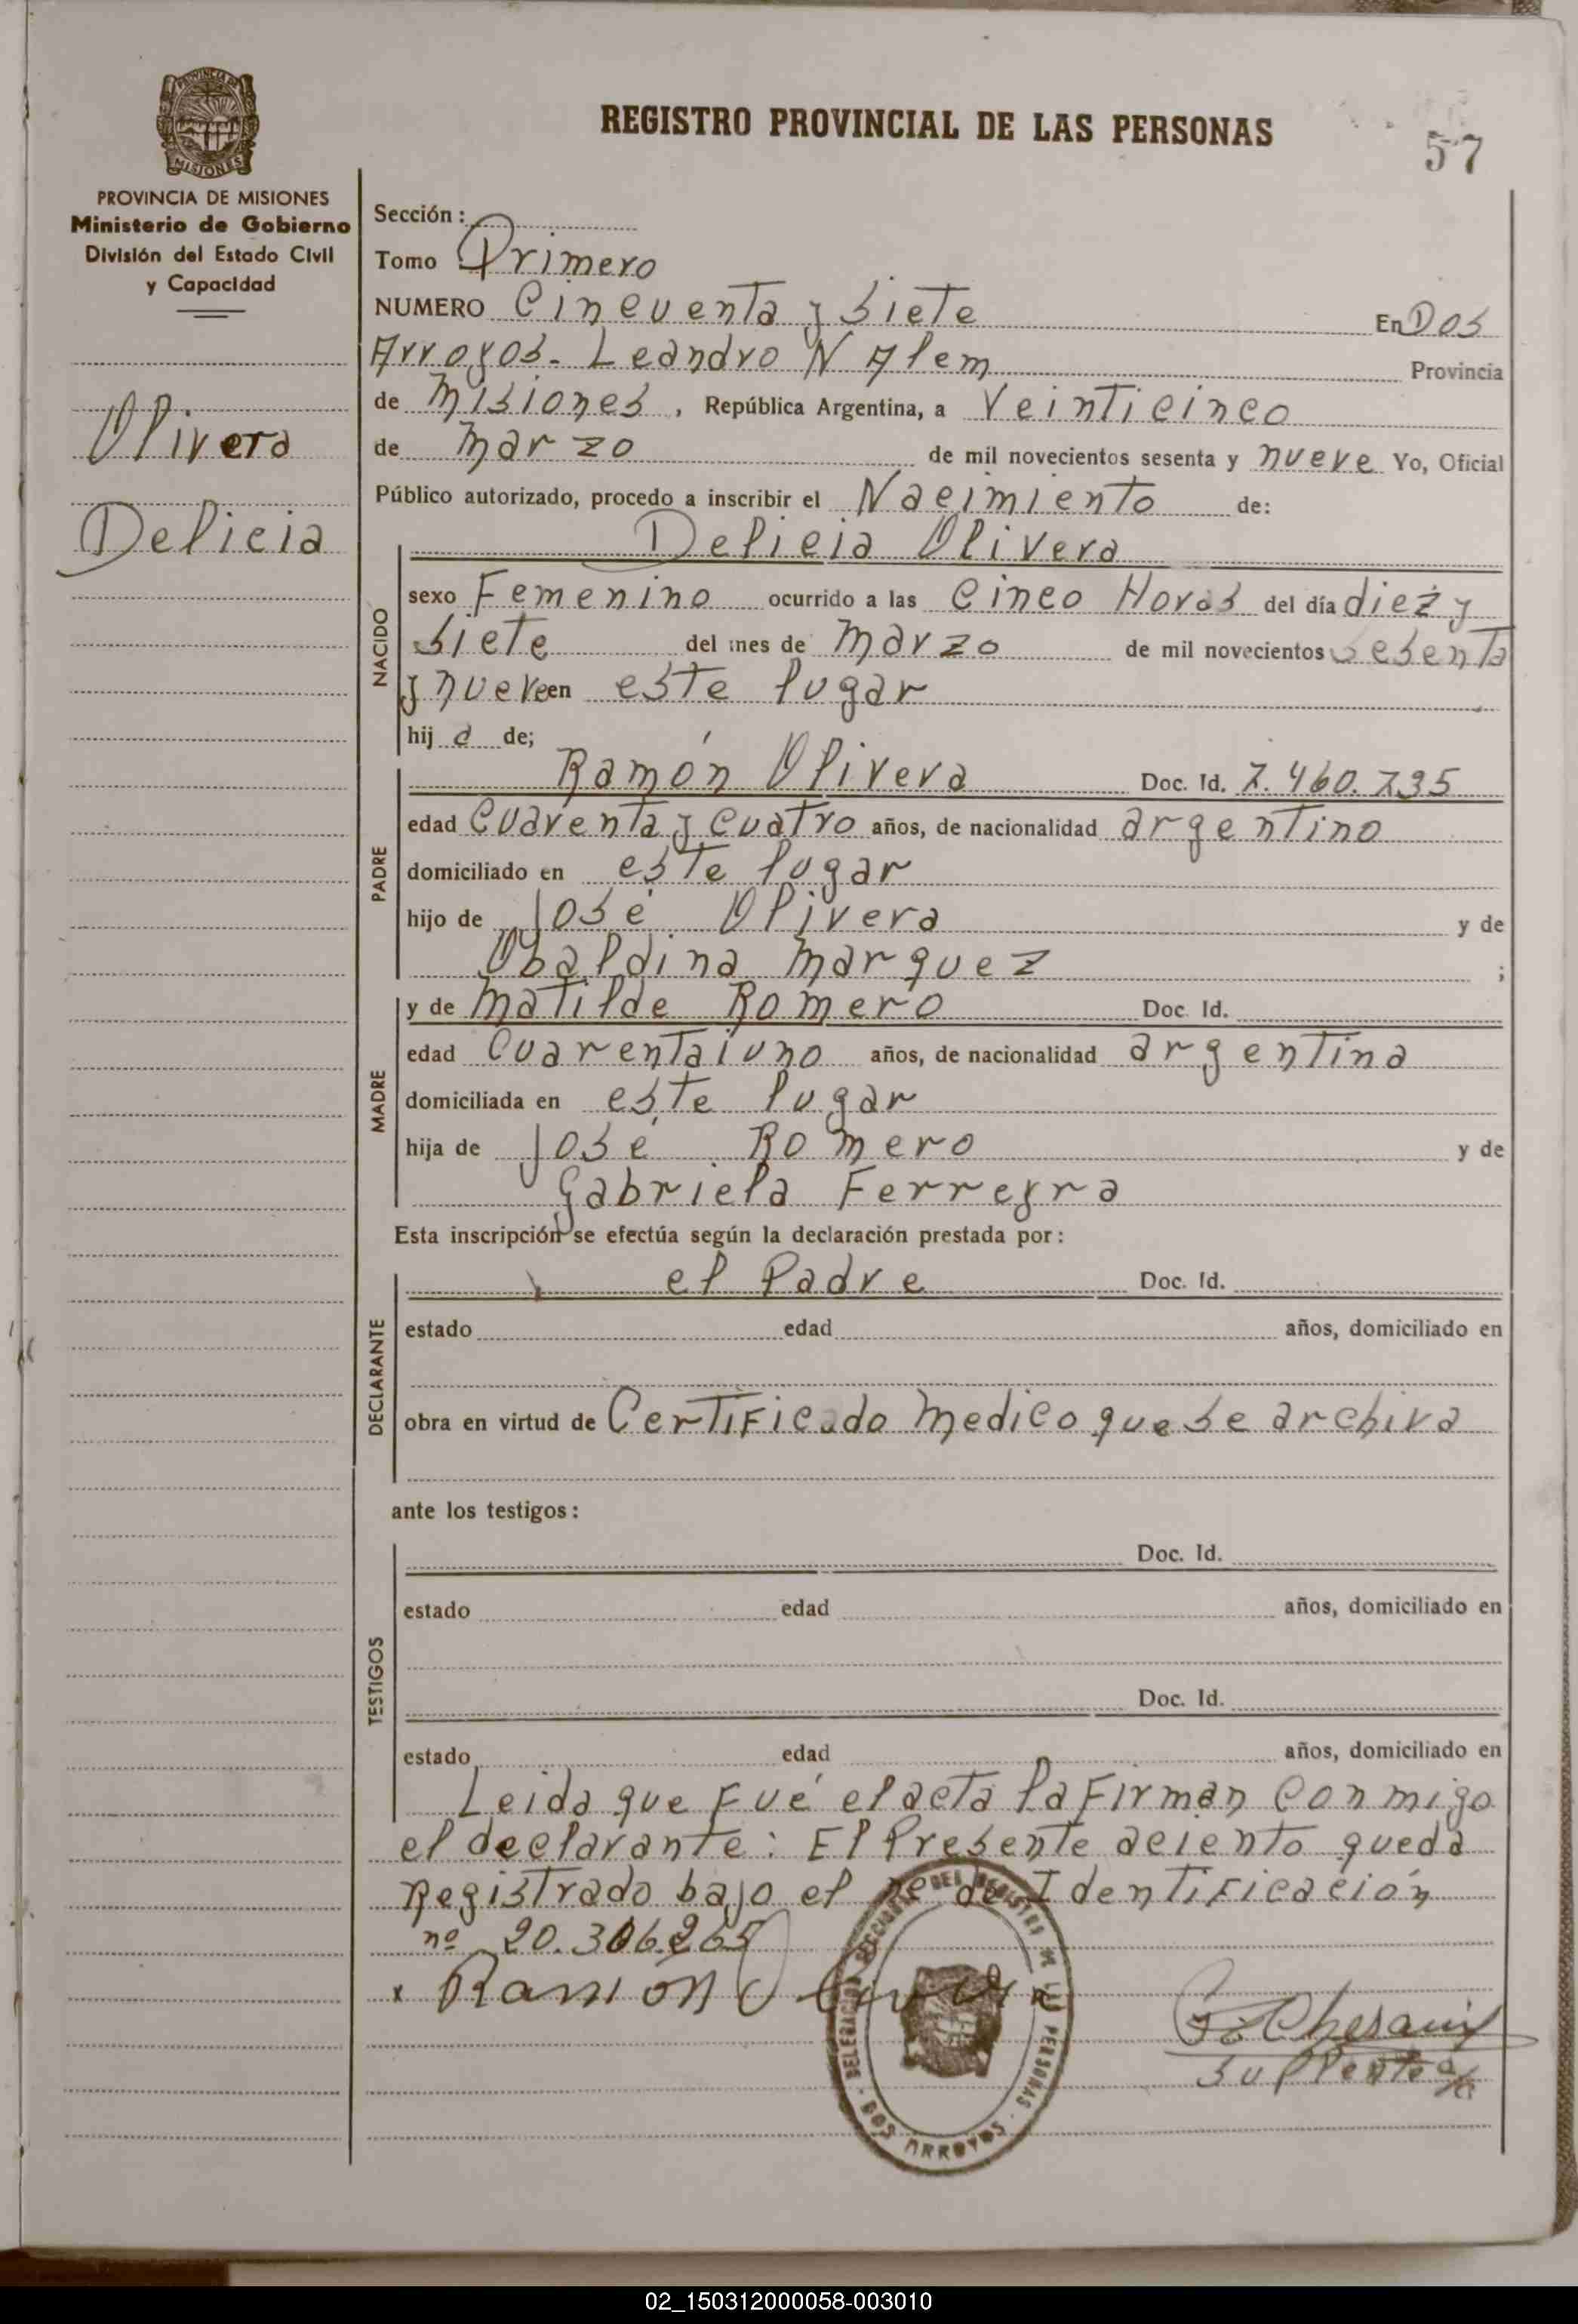 REGISTRO PROVINCIAL DE LAS PERSONAS
57
PROVINCIA DE MISIONES
MISIONES
PROVINCIA DE MISIONES
Ministerio de Gobierno
División del Estado Civil
y Capacidad
Olivera
Delicia
Sección:
Tomo Primero
NUMERO Cincuenta y Siete En Dos
Arroyos - Leandro N Alem Provincia
de Misiones, República Argentina, a Veinticinco
de Marzo de mil novecientos sesenta y nueve Yo, Oficial
Público autorizado, procedo a inscribir el Nacimiento de:
Delicia Olivera
NACIDO
sexo Femenino ocurrido a las Cinco Horas del día diez y
Siete del mes de Marzo de mil novecientos Sesenta
y nueve en este lugar
hij a de;
PADRE
Ramón Olivera Doc. Id. 7.460.735
edad Cuarenta y Cuatro años, de nacionalidad argentino
domiciliado en este lugar
hijo de José Olivera y de
Obaldina Marquez ;
MADRE
y de Matilde Romero Doc. Id.
edad Cuarentaiuno años, de nacionalidad argentina
domiciliada en este lugar
hija de José Romero y de
Gabriela Ferreyra
Esta inscripción se efectúa según la declaración prestada por:
DECLARANTE
el Padre Doc. Id.
estado edad años, domiciliado en
obra en virtud de Certificado Medico que se archiva
ante los testigos:
TESTIGOS
Doc. Id.
estado edad años, domiciliado en
Doc. Id.
estado edad años, domiciliado en
Leida que Fué el acta la Firman Con migo
el declarante: El Presente aciento queda
Registrado bajo el no de Identificación
nº 20.306.265
x Ramón Olivera
Suplente
DELEGACION SECCIONAL DEL REGISTRO DE LAS PERSONAS - DOS ARROYOS -
02_150312000058-003010